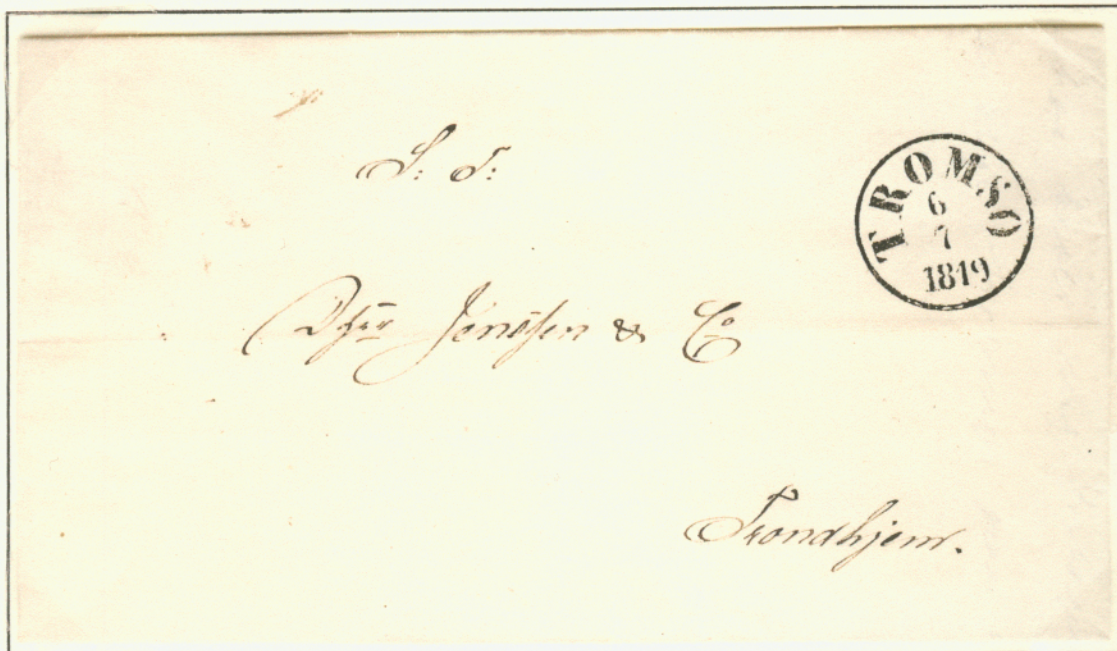 S: T:
TROMSØ
6
7
1849
DHrr Jenssen & Co
Trondhjem.